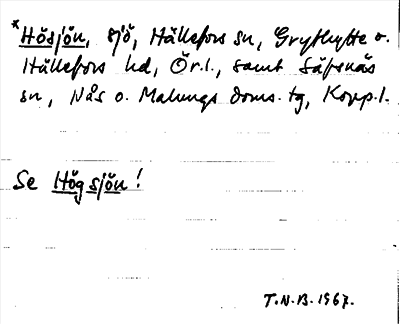 *Hösjön, sjö, Hällefors sn, Grythytte o.
Hällefors hd, Ör.l., samt Säfsnäs
sn, Nås o. Malungs doms. tg, Kopp.l.
Se Högsjön!
T.N.B. 1967.